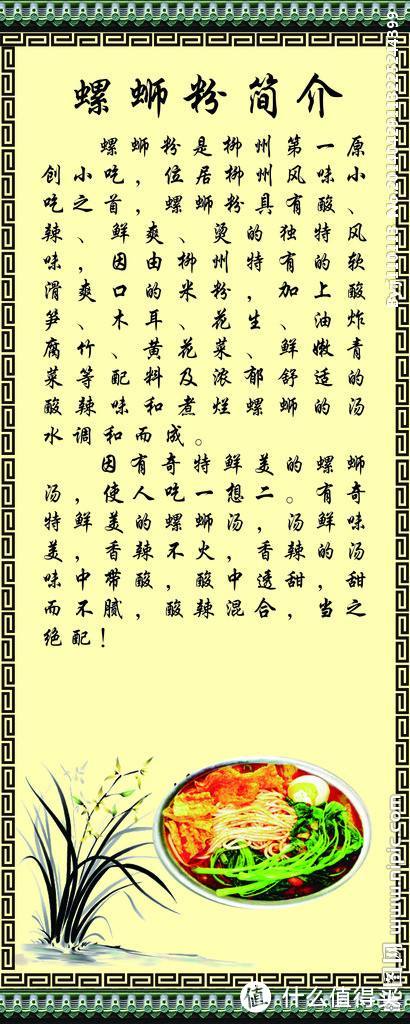 螺蛳粉简介
螺蛳粉是柳州第一原
创小吃，位居柳州风味小
吃之首，螺蛳粉具有酸、
辣、鲜爽、烫的独特风
味，因由柳州特有的软
滑爽口的米粉，加上酸
笋、木耳、花生、油炸
腐竹、黄花菜、鲜嫩青
菜等配料及浓郁舒适的
酸辣味和煮烂螺蛳的汤
水调和而成。
因有奇特鲜美的螺蛳
汤，使人吃一想二。有奇
特鲜美的螺蛳汤，汤鲜味
美，香辣不火，香辣的汤
味中带酸，酸中透甜，甜
而不腻，酸辣混合，当之
绝配！
值 什么值得买
www.nipic.com